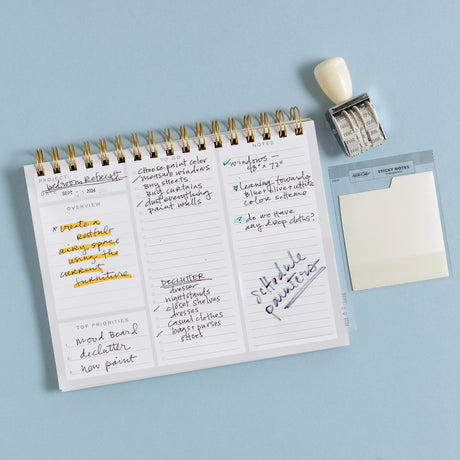 PROJECT
bedroom Retreat
DATE SEPT 2026
OVERVIEW
create a
restful
airy space
using the
current
furniture
TOP PRIORITIES
1. mood Board
2. declutter
3. new paint
TO-DO
Choose paint color
measure windows
Buy sheets
Buy curtains
dust everything
paint walls
DECLUTTER
dresser
nightstands
closet shelves
dresses
casual clothes
bags + purses
shoes
NOTES
windows —
48" x 72"
leaning towards
blue + olive + white
color scheme
do we have
any drop cloths?
Schedule
painters
STICKY NOTES